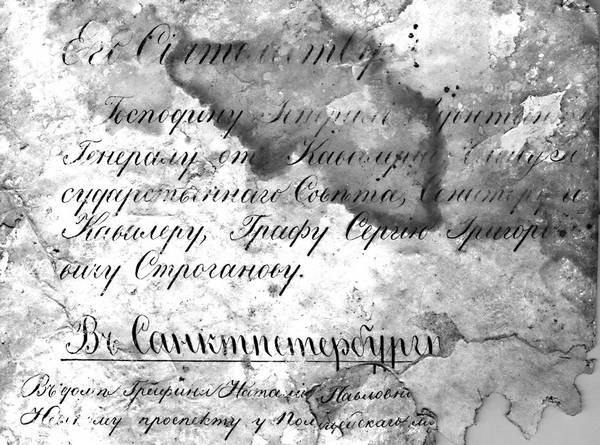 Его Сіятельству
Господину Генералъ Адъютанту
Генералу отъ Кавалеріи Члену Го
сударственнаго Совѣта, Сенатору и
Кавалеру, Графу Сергію Григорь
евичу Строганову.
Въ Санктпетербургѣ
Въ домѣ Графини Натальи Павловны
Невскому проспекту у Полицейскаго мо